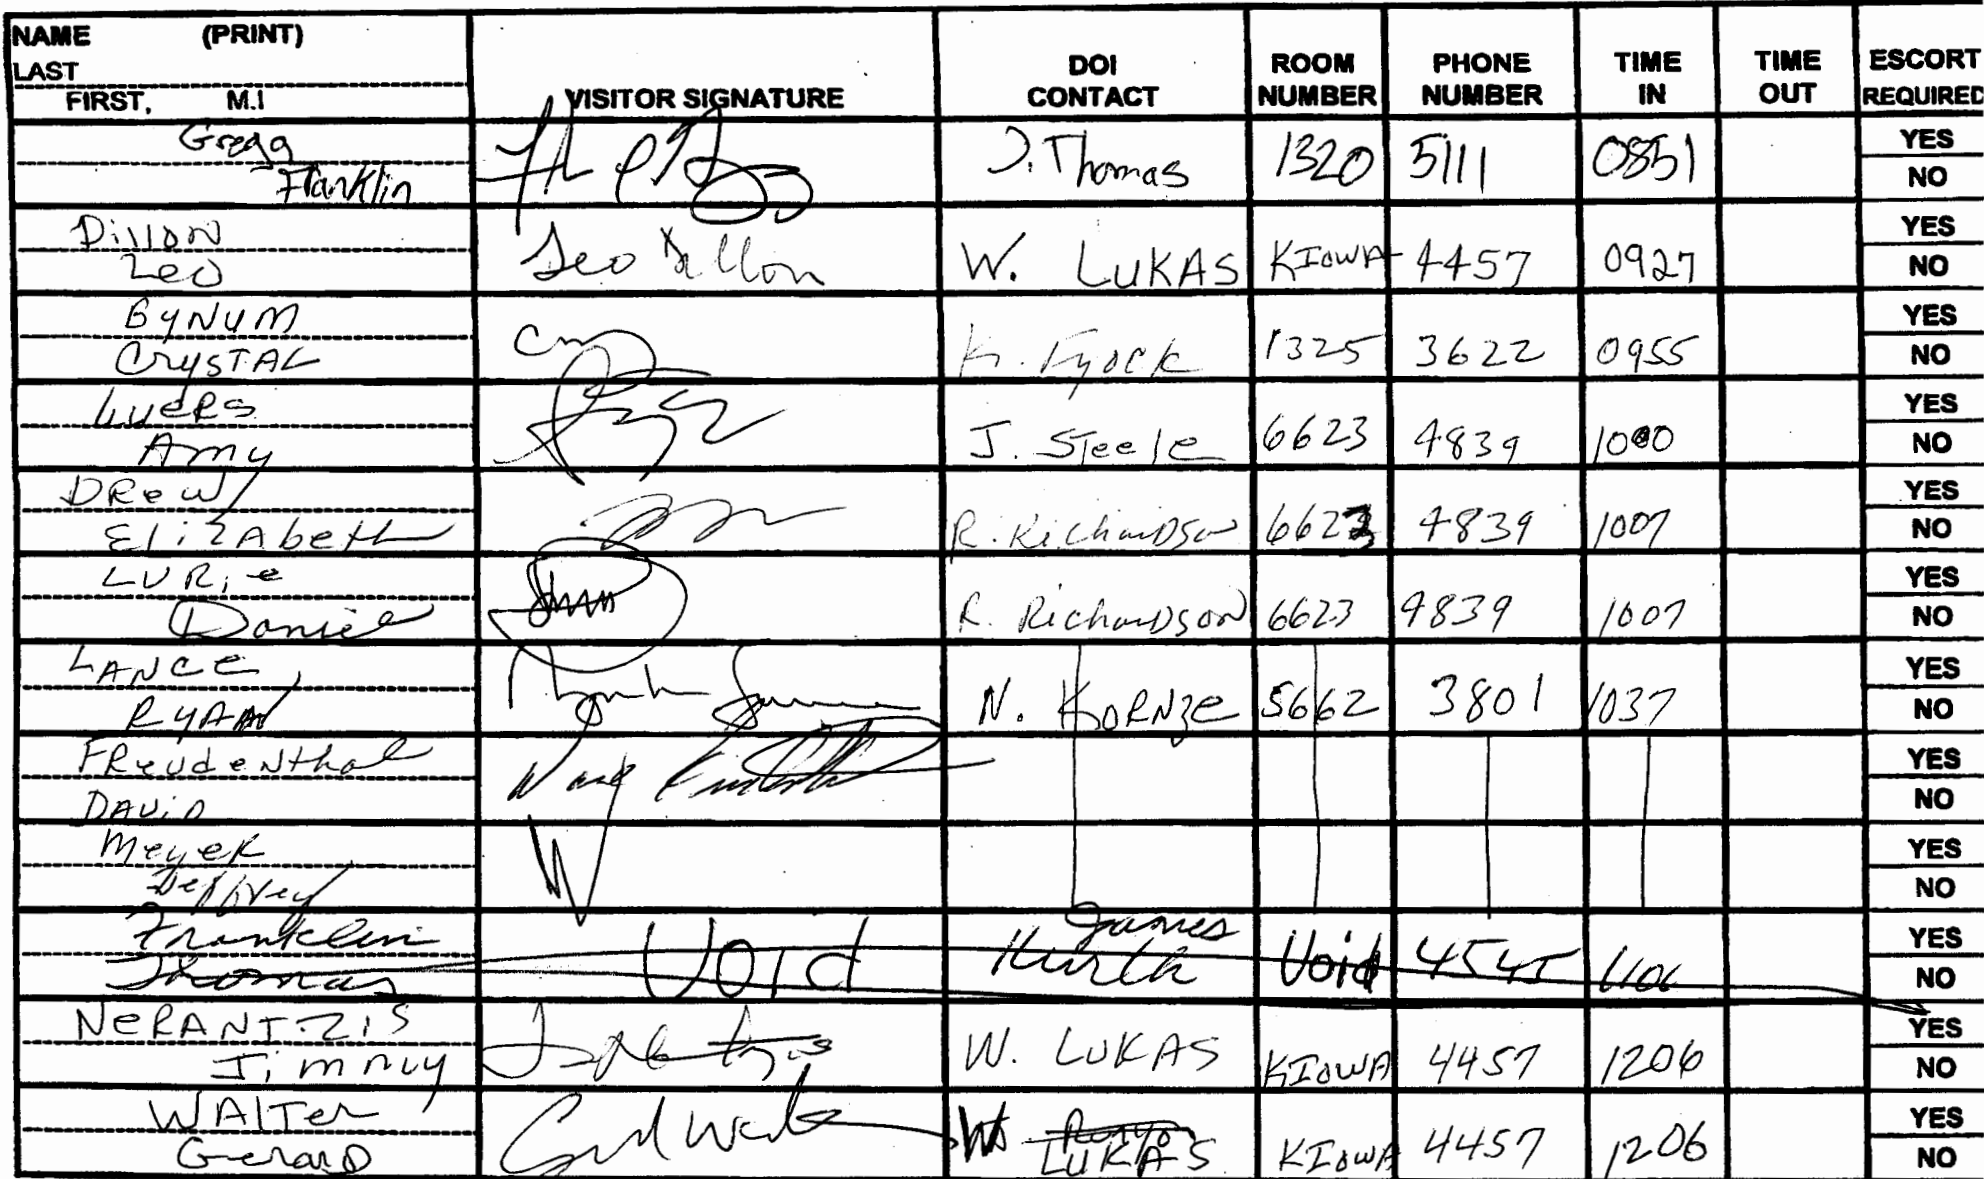 NAME (PRINT)
LAST
FIRST, M.I
VISITOR SIGNATURE
DOI CONTACT
ROOM NUMBER
PHONE NUMBER
TIME IN
TIME OUT
ESCORT REQUIRED
Gregg
Franklin
J. Thomas 1320 5111 0851
YES
NO
Dillon
Leo
Leo Dillon W. LUKAS KIOWA 4457 0927
YES
NO
BYNUM
CRYSTAL
K. Kyock 1325 3622 0955
YES
NO
Luers
Amy
J. Steele 6623 4839 1000
YES
NO
DRew
ElizAbeth
R. RichaRDSon 6623 4839 1007
YES
NO
LURie
Daniel
R. RichaRDSON 6623 4839 1007
YES
NO
LANCe
RYAN
N. KORNZe 5662 3801 1037
YES
NO
FReudeNthal
DAViD
YES
NO
MeyeR
Jeffrey
YES
NO
Franklin
Thomas
VOId James Kurth Void 4545 1106
YES
NO
NeRANTZIS
Jimmy
W. LUKAS KIOWA 4457 1206
YES
NO
WALTer
GerarD
W LUKAS KIOWA 4457 1206
YES
NO